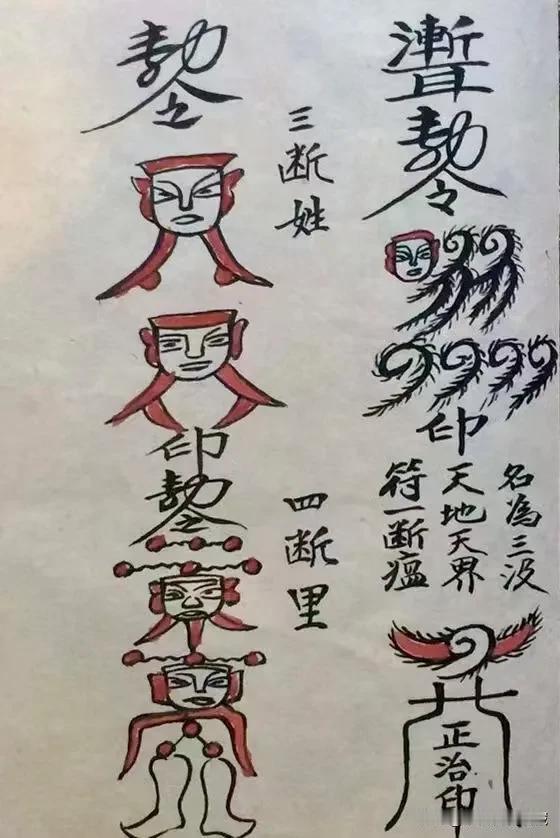 聻
勅令
印
名為三没
天地天界
符一断瘟
正治印
三断姓
勅令
印
四断里
勅令